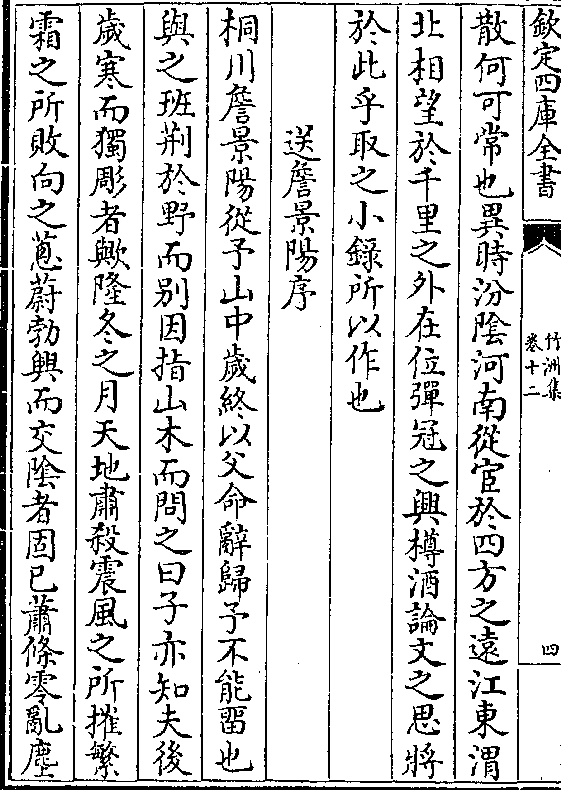 欽定四庫全書
竹洲集
卷十二
四
散何可常也異時汾陰河南從宦於四方之遠江東渭
北相望於千里之外在位彈冠之興樽酒論文之思將
於此乎取之小錄所以作也
送詹景陽序
桐川詹景陽從予山中歲終以父命辭歸予不能留也
與之班荆於野而别因指山木而問之曰子亦知夫後
歲寒而獨彫者歟隆冬之月天地肅殺震風之所摧繁
霜之所敗向之蔥蔚勃興而交陰者固已蕭條零亂塵